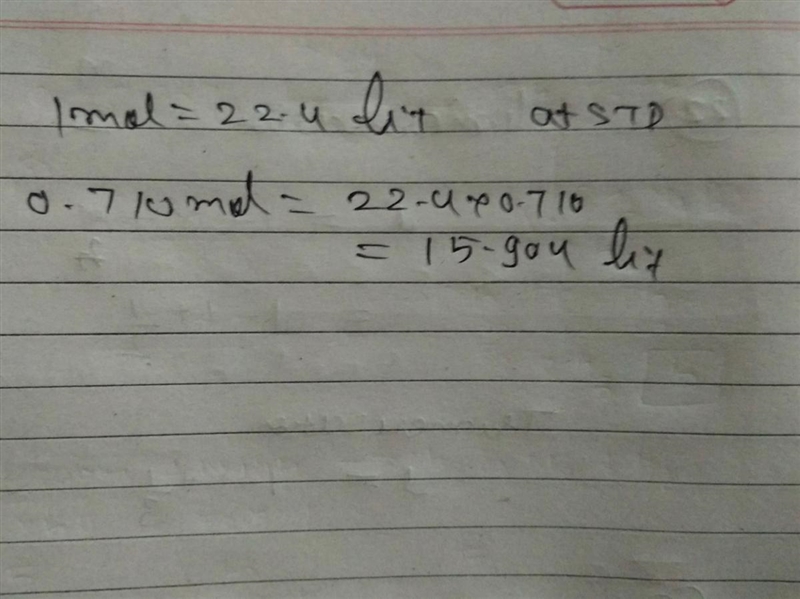 1 mol = 22.4 lit at STP
0.710 mol = 22.4 × 0.710
= 15.904 lit